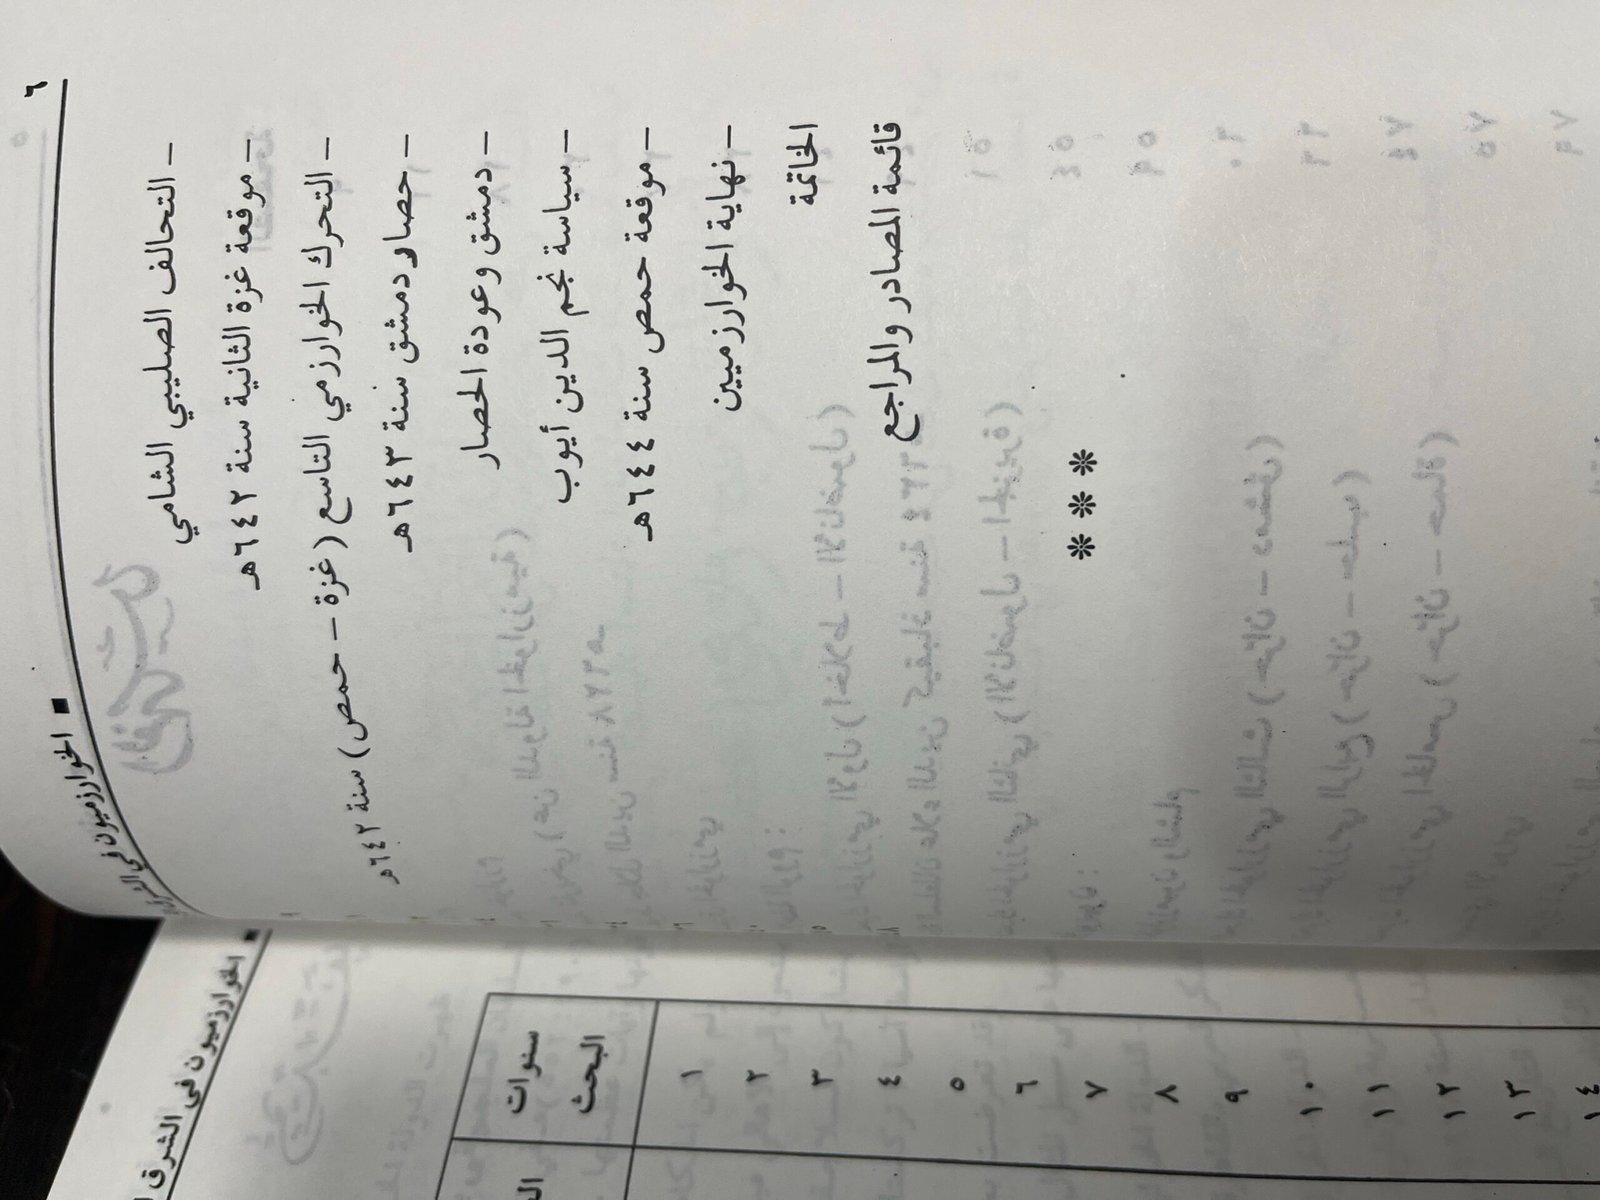 ٦
■ الخوارزميون في الشرق
– التحالف الصليبي الشامي
– موقعة غزة الثانية سنة ٦٤٢هـ
– التحرك الخوارزمي التاسع (غزة – حمص) سنة ٦٤٢هـ
– حصار دمشق سنة ٦٤٣هـ
– دمشق وعودة الحصار
– سياسة نجم الدين أيوب
– موقعة حمص سنة ٦٤٤هـ
– نهاية الخوارزميين
الخاتمة
قائمة المصادر والمراجع
❊ ❊ ❊
■ الخوارزميون في الشرق
سنوات
البحث
١
٢
٣
٤
٥
٦
٧
٨
٩
١٠
١١
١٢
١٣
١٤